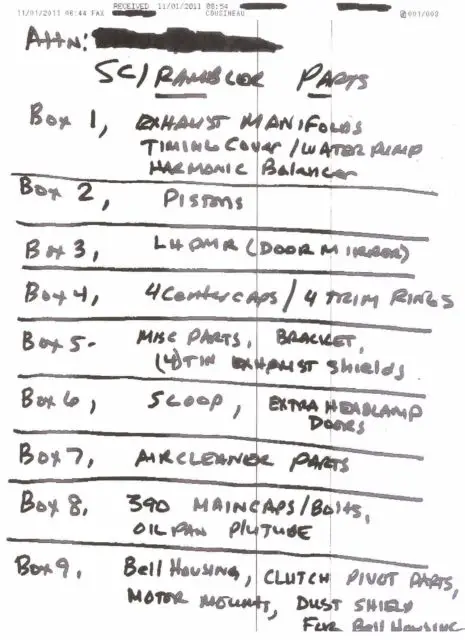 11/01/2011 08:44 FAX
RECEIVED 11/01/2011 08:54
COUSINEAU
001/003
ATTN:
SC/RAMBLER PARTS
Box 1, EXHAUST MANIFOLDS
TIMING COVER / WATER PUMP
HARMONIC Balancer
Box 2, PISTONS
Box 3, LHDMR (DOOR MIRROR)
Box 4, 4 Center CAPS / 4 TRIM RINGS
Box 5- MISC PARTS, BRACKET,
(4) TIN EXHAUST Shields
Box 6, SCOOP, EXTRA HEADLAMP
DOORS
Box 7, AIRCLEANER PARTS
Box 8, 390 MAINCAPS/Bolts,
OIL PAN P/UTUBE
Box 9, Bell Housing, CLUTCH PIVOT PARTS,
MOTOR MOUNT, DUST SHIELD
FOR Bell Housing